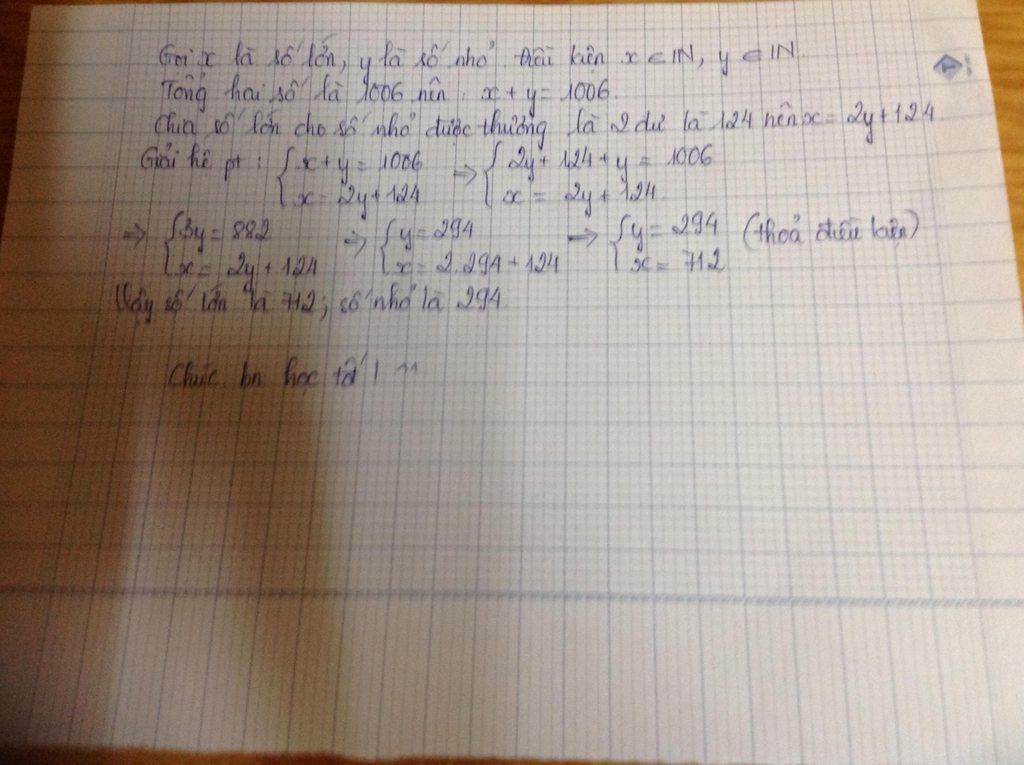 Gọi x là số lớn, y là số nhỏ điều kiện x ∈ IN, y ∈ IN.
Tổng hai số là 1006 nên: x + y = 1006.
Chia số lớn cho số nhỏ được thương là 2 dư là 124 nên x = 2y + 124
Giải hệ pt: { x + y = 1006 ; x = 2y + 124 => { 2y + 124 + y = 1006 ; x = 2y + 124
=> { 3y = 882 ; x = 2y + 124 => { y = 294 ; x = 2.294 + 124 => { y = 294 ; x = 712 (thoả điều kiện)
Vậy số lớn là 712; số nhỏ là 294.
Chúc bn học tố! ^^